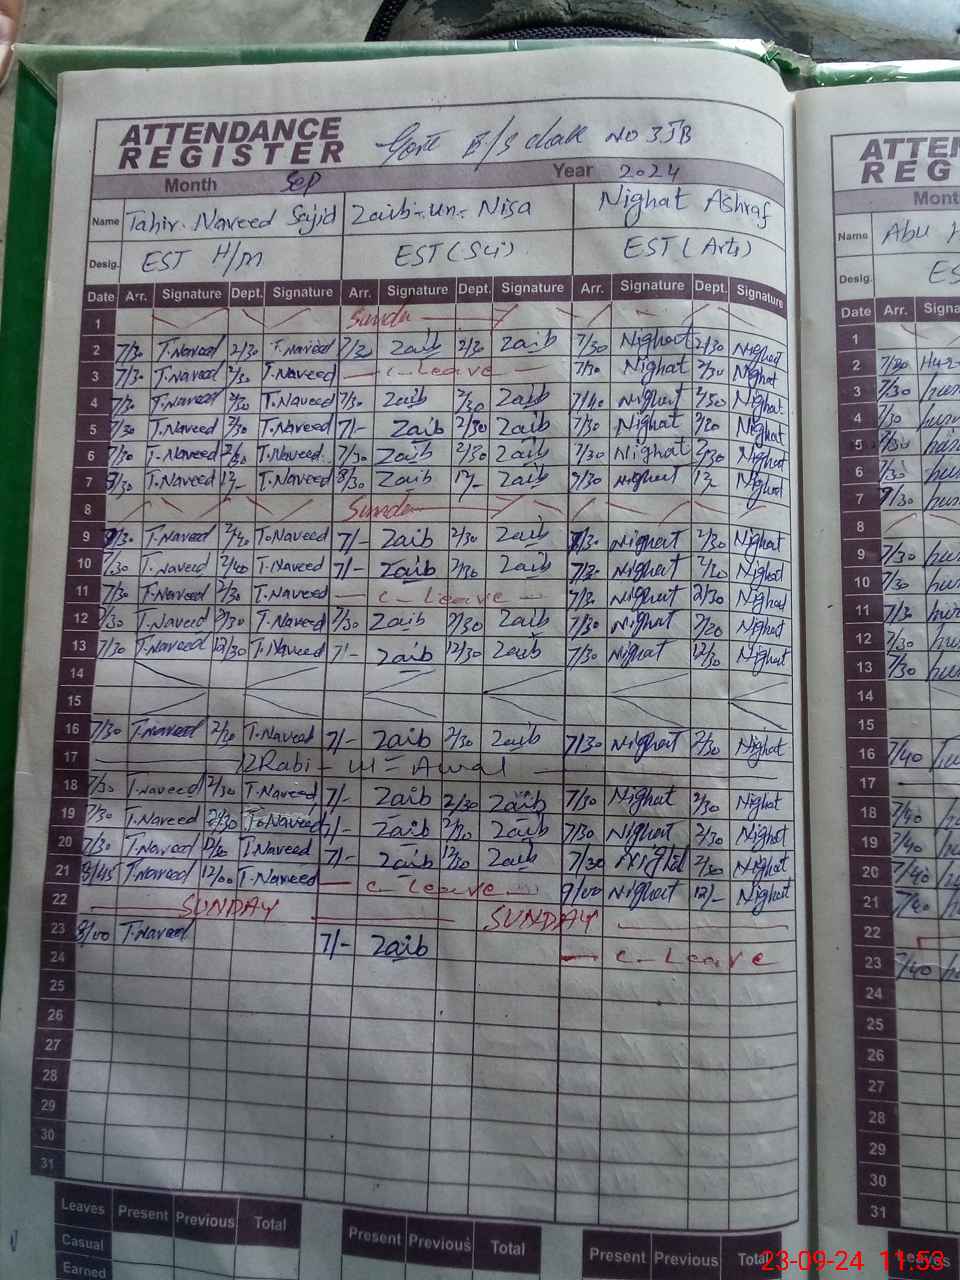 ATTENDANCE
REGISTER
Govt E/S chak NO 3JB
Month Sep Year 2024
Name Tahir Naveed Sajid Zaib-un-Nisa Nighat Ashraf
Desig. EST H/M EST (Sci) EST (Arts)
Date Arr. Signature Dept. Signature Arr. Signature Dept. Signature Arr. Signature Dept. Signature
1 Sunday
2 7/30 T.Naveed 2/30 T.Naveed 7/30 Zaib 2/30 Zaib 7/30 Nighat 2/30 Nighat
3 7/30 T.Naveed 2/30 T.Naveed C-Leave Nighat 2/30 Nighat
4 7/30 T.Naveed 2/30 T.Naveed 7/30 Zaib 2/30 Zaib 7/40 Nighat Nighat
5 7/30 T.Naveed 2/30 T.Naveed 7/- Zaib 2/30 Zaib 7/30 Nighat Nighat
6 7/30 T.Naveed T.Naveed 7/30 Zaib 2/30 Zaib 7/30 Nighat 2/30 Nighat
7 8/30 T.Naveed 12/- T.Naveed 8/30 Zaib 12/- Zaib Nighat 12/- Nighat
8 Sunday
9 T.Naveed 2/40 T.Naveed 7/- Zaib 2/30 Zaib Nighat 2/30 Nighat
10 7/30 T.Naveed 2/40 T.Naveed 7/- Zaib 2/30 Zaib 7/30 Nighat Nighat
11 7/30 T.Naveed 2/30 T.Naveed C-Leave 7/30 Nighat 2/30 Nighat
12 7/30 T.Naveed 2/30 T.Naveed 7/30 Zaib 2/30 Zaib 7/30 Nighat 2/20 Nighat
13 7/30 T.Naveed 12/30 T.Naveed 7/- Zaib 12/30 Zaib 7/30 Nighat 12/30 Nighat
14
15
16 7/30 T.Naveed T.Naveed 7/- Zaib 2/30 Zaib 7/30 Nighat 2/30 Nighat
17 12 Rabi-ul-Awal
18 7/30 T.Naveed 2/30 T.Naveed 7/- Zaib 2/30 Zaib 7/30 Nighat 2/30 Nighat
19 7/30 T.Naveed 2/30 T.Naveed 7/- Zaib 2/30 Zaib 7/30 Nighat 2/30 Nighat
20 7/30 T.Naveed 12/30 T.Naveed 7/- Zaib 12/30 Zaib 7/30 Nighat Nighat
21 8/45 T.Naveed 12/00 T.Naveed C-Leave 9/00 Nighat 12/- Nighat
22 SUNDAY SUNDAY
23 8/00 T.Naveed 7/- Zaib C-Leave
24
25
26
27
28
29
30
31
Leaves Present Previous Total Present Previous Total Present Previous Total
Casual
Earned
ATTEN
REG
Month
Name Abu
Desig. ES
Date Arr. Signa
1
2 7/30
3 7/30
4 7/30
5 7/30
6 7/30
7
8
9 7/30
10 7/30
11 7/30
12 7/30
13 7/30
14
15
16 7/40
17
18 7/40
19 7/40
20 7/40
21 7/40
22
23 7/40
24
25
26
27
28
29
30
31
Leaves
23-09-24 11:53